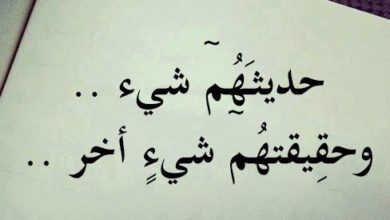 حديثـَهُمۤ شيء ..
وحقِيقتهُمۤ شيءٍ أخر ..